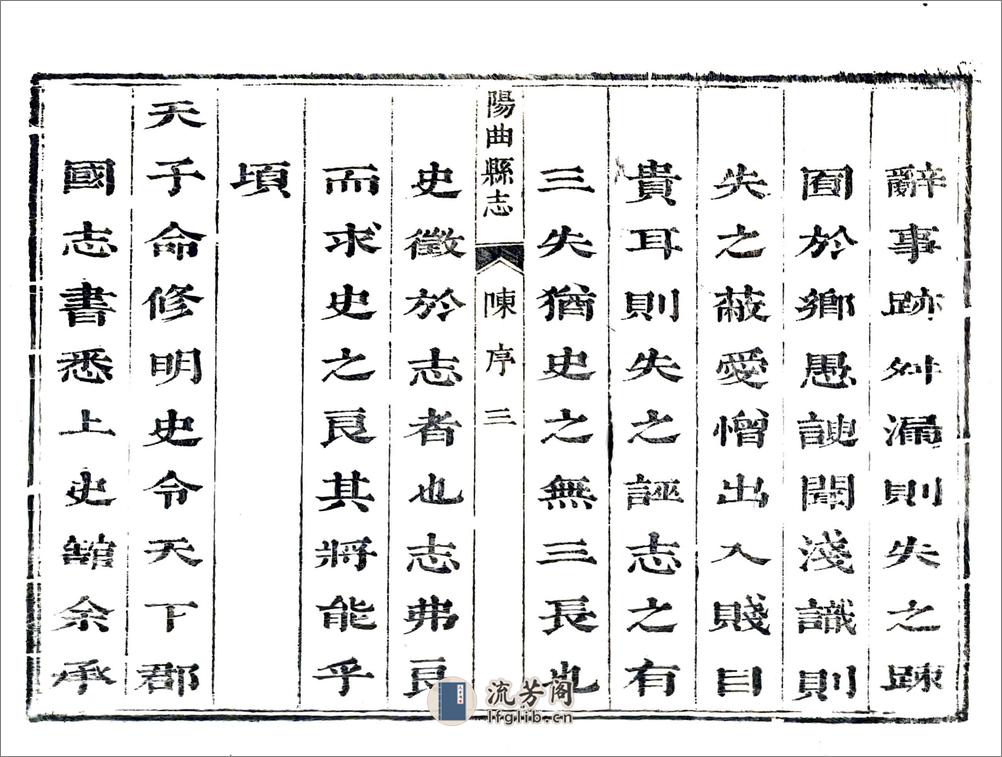 辭事跡舛漏則失之踈
囿於鄉愚諛聞淺識則
失之蔽愛憎出入賤目
貴耳則失之誣志之有
三失猶史之無三長也
陽曲縣志 陳序 三
史徵於志者也志弗良
而求史之良其將能乎
頃
天子命修明史令天下郡
國志書悉上史館余承
流芳阁
lfglib.cn